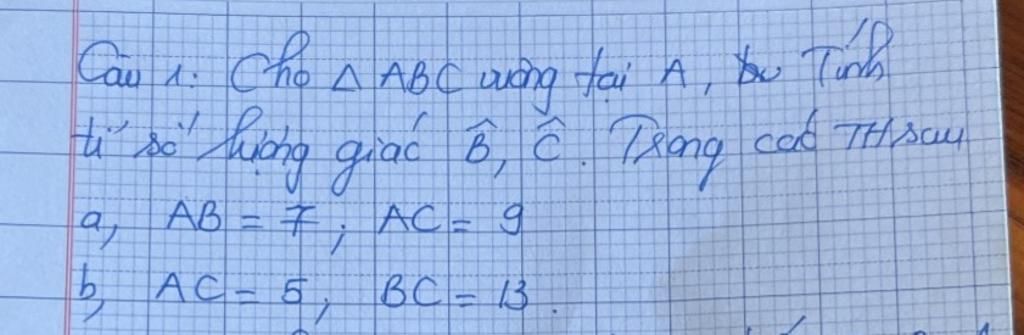 Câu 1: Cho △ ABC vuông tại A, Tính
tỉ số lượng giác B̂, Ĉ. Trong các TH sau
a, AB = 7; AC = 9
b, AC = 5, BC = 13.